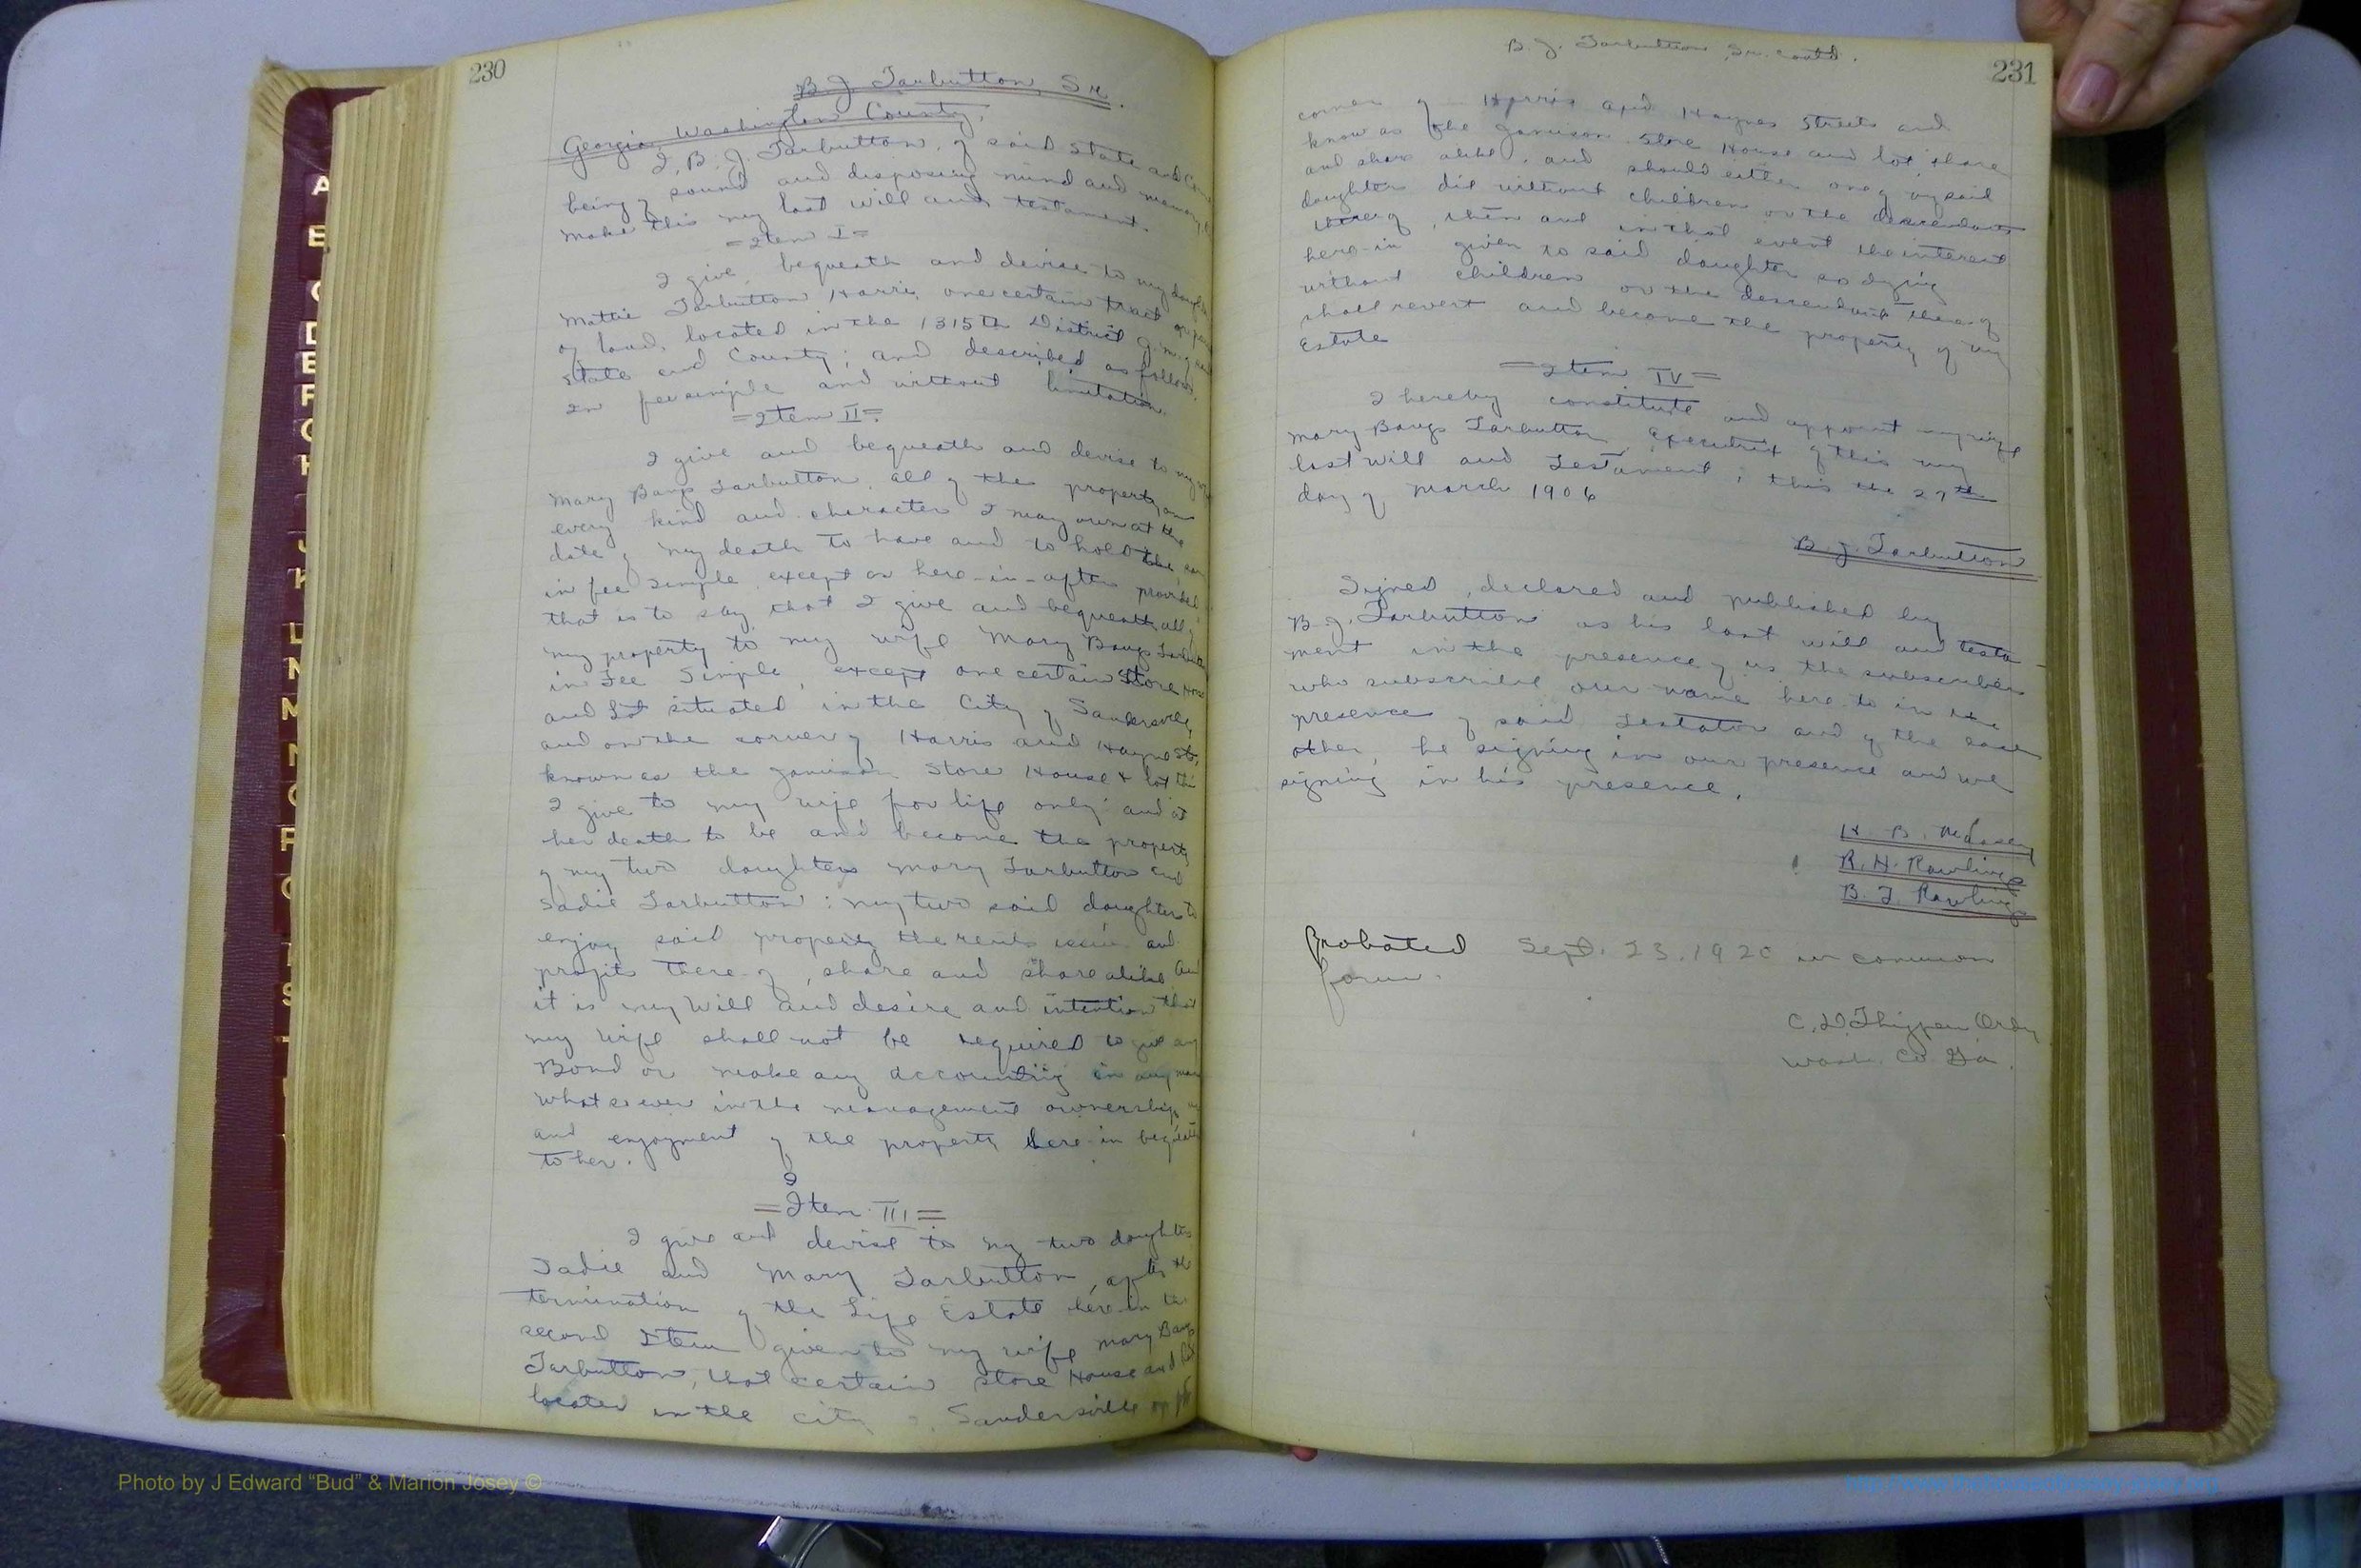 230
B. J. Tarbutton, Sr.
Georgia, Washington County,
I, B. J. Tarbutton, of said State and
being of sound and disposing mind and memory,
make this my last will and testament.
=Item I=
I give, bequeath and devise to my
Mattie Tarbutton Harris, one certain tract or
of land, located in the 1315th District G.M. of
State and County; and described as follows,
in fee simple and without limitation.
=Item II=
I give and bequeath and devise to my
Mary Bangs Tarbutton, all of the property
every kind and character I may own at the
date of my death to have and to hold the
in fee simple, except as here-in-after provided
that is to say, that I give and bequeath all
my property to my wife Mary Bangs
in Fee Simple, except one certain Store
and Lot situated in the City of Sandersville,
and on the corner of Harris and Hayne Sts,
known as the Jamison Store House & lot this
I give to my wife for life only and at
her death to be and become the property
of my two daughters Mary Tarbutton and
Sadie Tarbutton: my two said daughters to
enjoy said property the rents issue and
profits there of, share and share alike and
it is my Will and desire and intention that
my wife shall not be required to give any
Bond or make any accounting in any
whatsoever in the management ownership
and enjoyment of the property here-in
to her.
=Item III=
I give and devise to my two daughters
Sadie and Mary Tarbutton, after the
termination of the Life Estate here-in the
second Item given to my wife Mary Bangs
Tarbutton, that certain store House and lot
located in the city of Sandersville
B. J. Tarbutton, Sr. contd.
231
corner of Harris and Haynes Streets and
know as the Jamison Store House and lot share
and share alike, and should either one of my said
daughters die without children or the descendants
thereof, then and in that event the interest
here-in given to said daughter so dying
without children or the descendant thereof
shall revert and become the property of my
Estate
=Item IV=
I hereby constitute and appoint my wife
Mary Bangs Tarbutton, Executrix of this my
last will and Testament, this the 27th
day of March 1906
B. J. Tarbutton
Signed, declared and published by
B. J. Tarbutton as his last will and testa-
ment in the presence of us the subscribers
who subscribe our name here to in the
presence of said Testator and of the each
other, he signing in our presence and we
signing in his presence.
H. B. Massey
R. H. Rawlings
B. T. Rawlings
Probated Sept. 23, 1920 in common
form.
C. D. Thigpen Ordy
Wash. Co. Ga.
Photo by J Edward “Bud” & Marion Josey ©